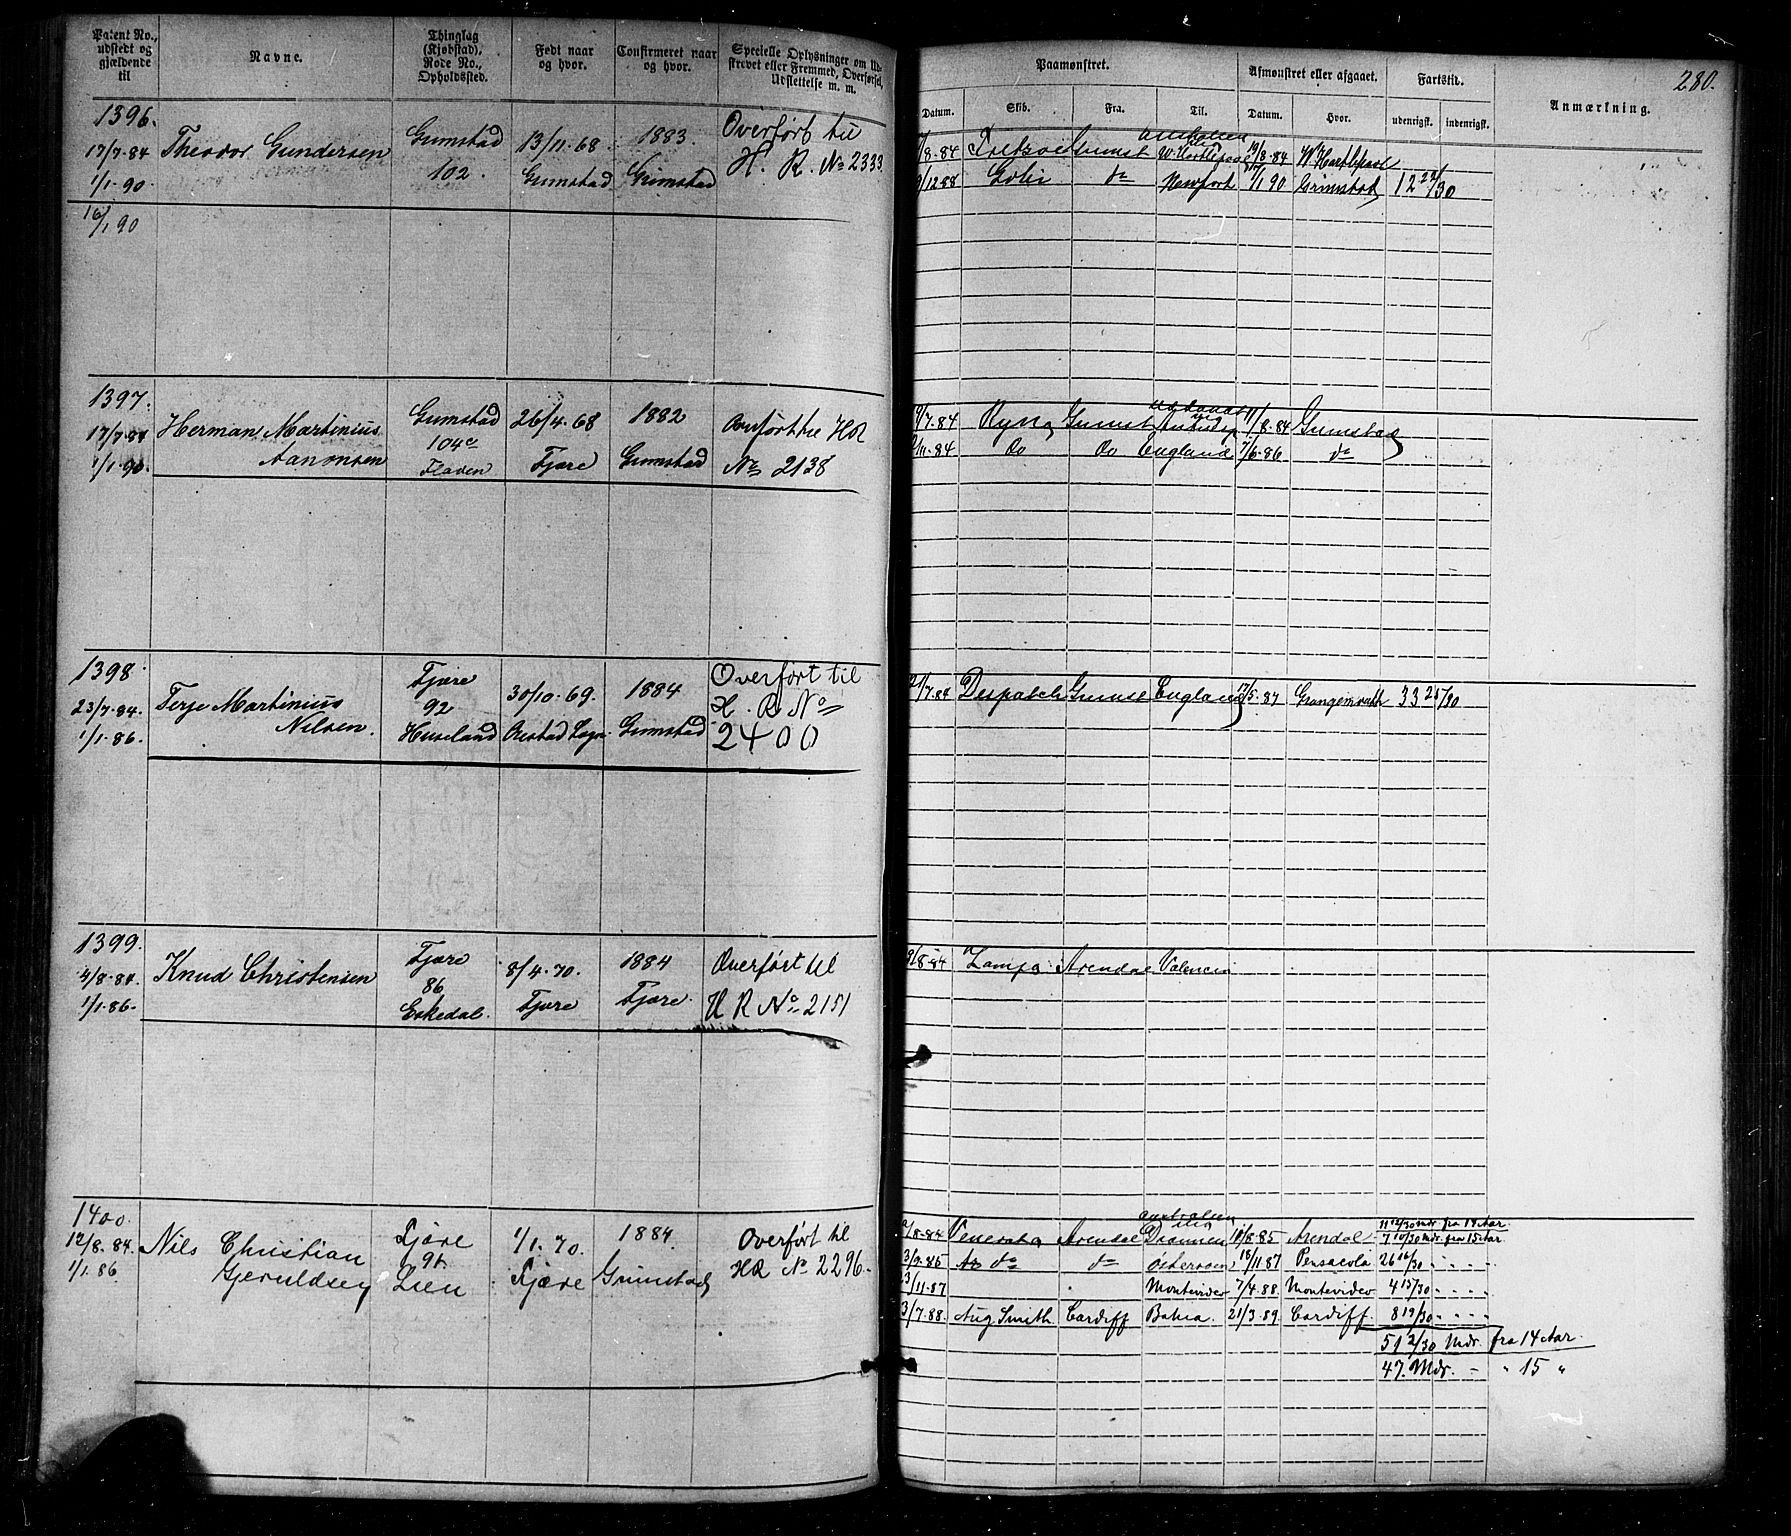 Patent No., udstedt og gjældende til
Navne.
Thinglag (Kjøbstad), Rode No., Opholdssted.
Født naar og hvor.
Confirmeret naar og hvor.
Specielle Oplysninger om Udskrevet eller Fremmed, Overførsel, Udslettelse m. m.
Paamønstret.
Datum.
Skib.
Fra.
Til.
Afmønstret eller afgaaet.
Datum.
Hvor.
Fartstid.
udenrigsk.
indenrigsk.
Anmærkning.
280.
1396.
17/7-84
1/1-90
16/1 90
Theodor Gundersen
Grimstad
102
13/11-68
Grimstad
1883
Grimstad
Overført til
H. R. No 2333
8-84
W. Hartlepool
19/8-84
W Hartlepool
/12 88
do
Newport
/1 90
Grimstad
12 22/30
1397.
17/7-84
1/1-90
Herman Martinius
Aanonsen
Grimstad
104c
Fladen
26/4-68
Fjære
1882
Grimstad
Overført til HR
No 2138
/7-84
Grimst
11/8-84
Grimstad
/11-84
do
do
England
7/6-86
do
1398.
23/7-84.
1/1-86.
Terje Martinius
Nilsen.
Fjære
92
Huseland
30/10-69.
1884
Grimstad
Overført til
H. R No
2400
/7-84
Despatch
Grimst
England
/5-87
Grangemouth
33 25/30
1399.
4/8-84
1/1-86-
Knud Christensen
Fjære
86
Eskedal.
8/4-70.
Fjære
1884
Fjære.
Overført til
H R No 2151
/8-84
Arendal
Valencia
1400.
12/8.84.
1/1.86
Nils Christian
Gjeruldsen
Fjære
94
Lien
1/1.70.
Fjære
1884.
Grimstad
Overført til
HR No 2296.
/8-84
Arendal
Drammen
/8-85
Arendal
11 12/30 mdr. fra 14 Aar
7 10/30 mdr. fra 15 Aar
3/9-85
do
do
18/11 87
Pensacola
26 16/30
/11-87
Montevideo
7/4-88
Montevideo
4 15/30
3/7-88
Aug Smith
Cardiff
Bahia.
21/3-89
Cardiff
8 19/30
51 2/30 Mdr. fra 14 Aar.
47. Mdr. - " 15 "